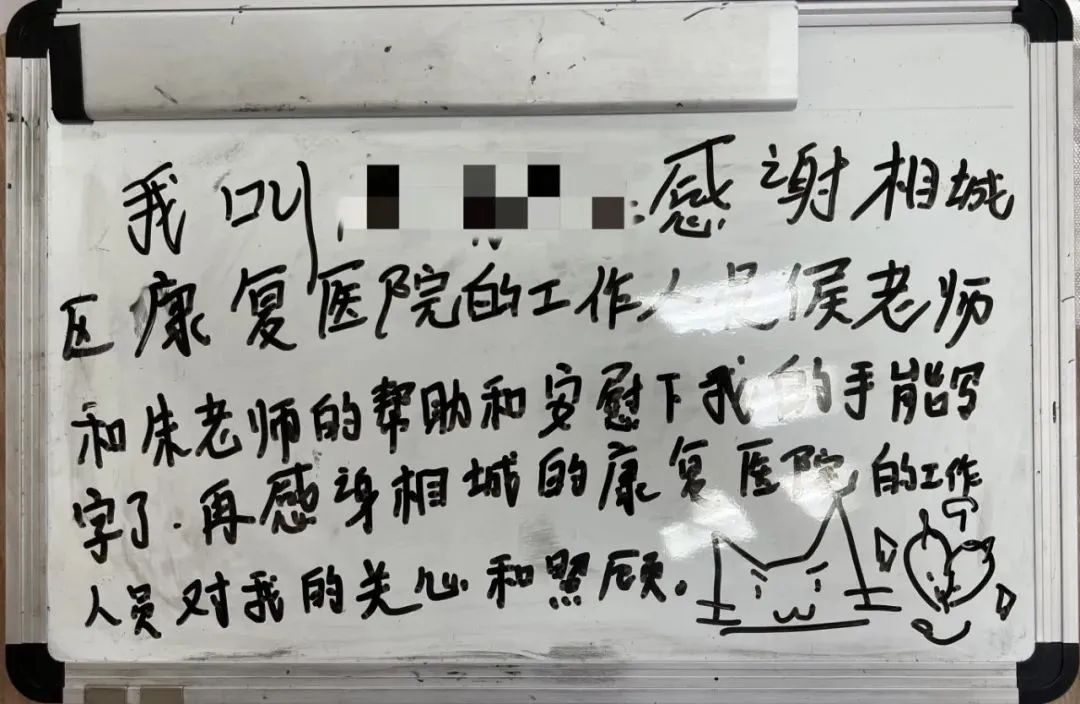 我叫:感谢相城
区康复医院的工作人员侯老师
和朱老师的帮助和安慰下我的手能写
字了.再感身相城的康复医院的工作
人员对我的关心和照顾。